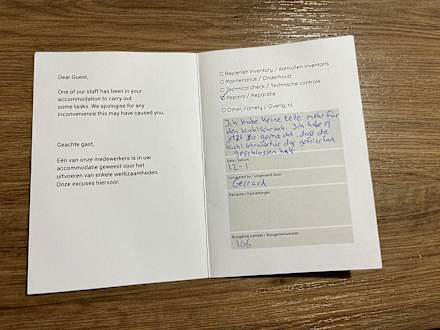 Dear Guest,
One of our staff has been in your
accommodation to carry out
some tasks. We apologise for any
inconvenience this may have caused you.
Geachte gast,
Eén van onze medewerkers is in uw
accommodatie geweest voor het
uitvoeren van enkele werkzaamheden.
Onze excuses hiervoor.
Replenish inventory / Aanvullen inventaris
Maintenance / Onderhoud
Technical check / Technische controle
Repairs / Reparatie
Other, namely / Overig, nl.
Ich habe keine teile mehr für
den Kühlschrank. Ich habe es
jetzt so gemacht, dass die
Kühlschranktür die gefrierfach
geschlossen hält.
Date / Datum
12-1
Completed by / Uitgevoerd door
Gerrard
Remarks / Opmerkingen
Bungalow number / Bungalownummer
166